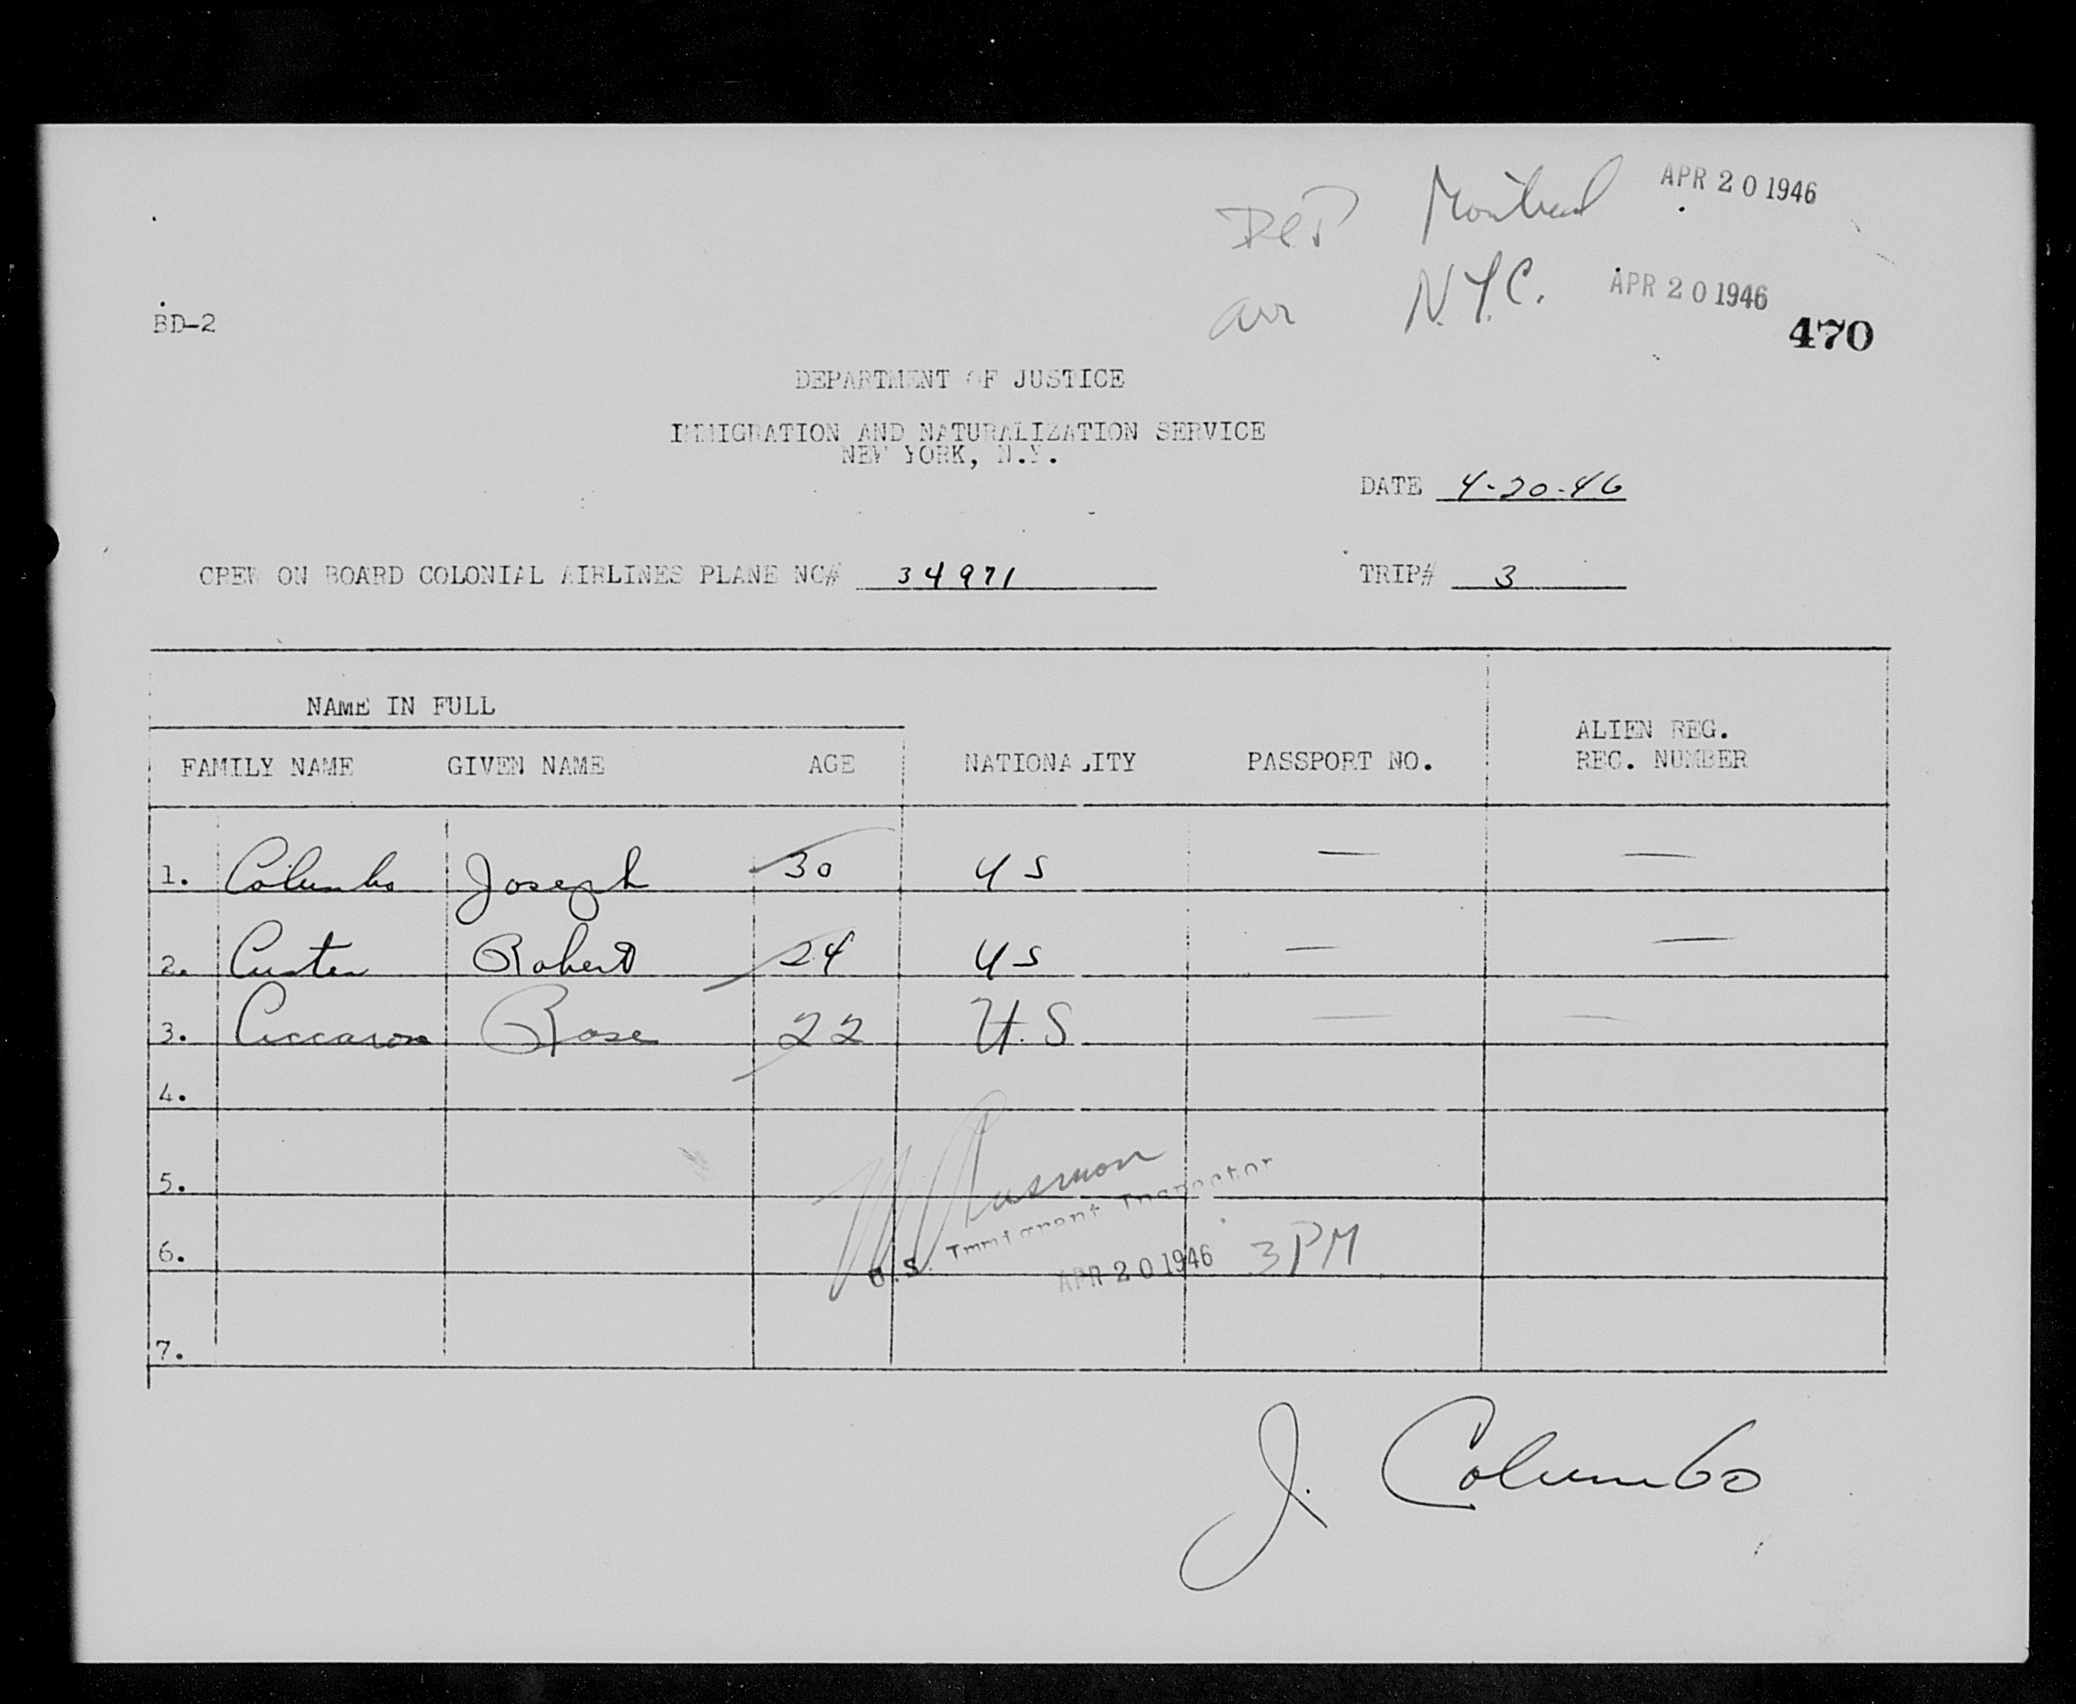 Dep Montreal APR 20 1946
arr N.Y.C. APR 20 1946
470
BD-2
DEPARTMENT OF JUSTICE
IMMIGRATION AND NATURALIZATION SERVICE
NEW YORK, N.Y.
DATE 4-20-46
CREW ON BOARD COLONIAL AIRLINES PLANE NO# 34971 TRIP# 3
NAME IN FULL
FAMILY NAME GIVEN NAME AGE NATIONALITY PASSPORT NO. ALIEN REG. REC. NUMBER
1. Columbo Joseph 30 US — —
2. Custer Robert 24 US — —
3. Ciccarone Rose 22 U.S — —
4.
5.
U.S. Immigrant Inspector
6. APR 20 1946 3 PM
7.
J. Columbo